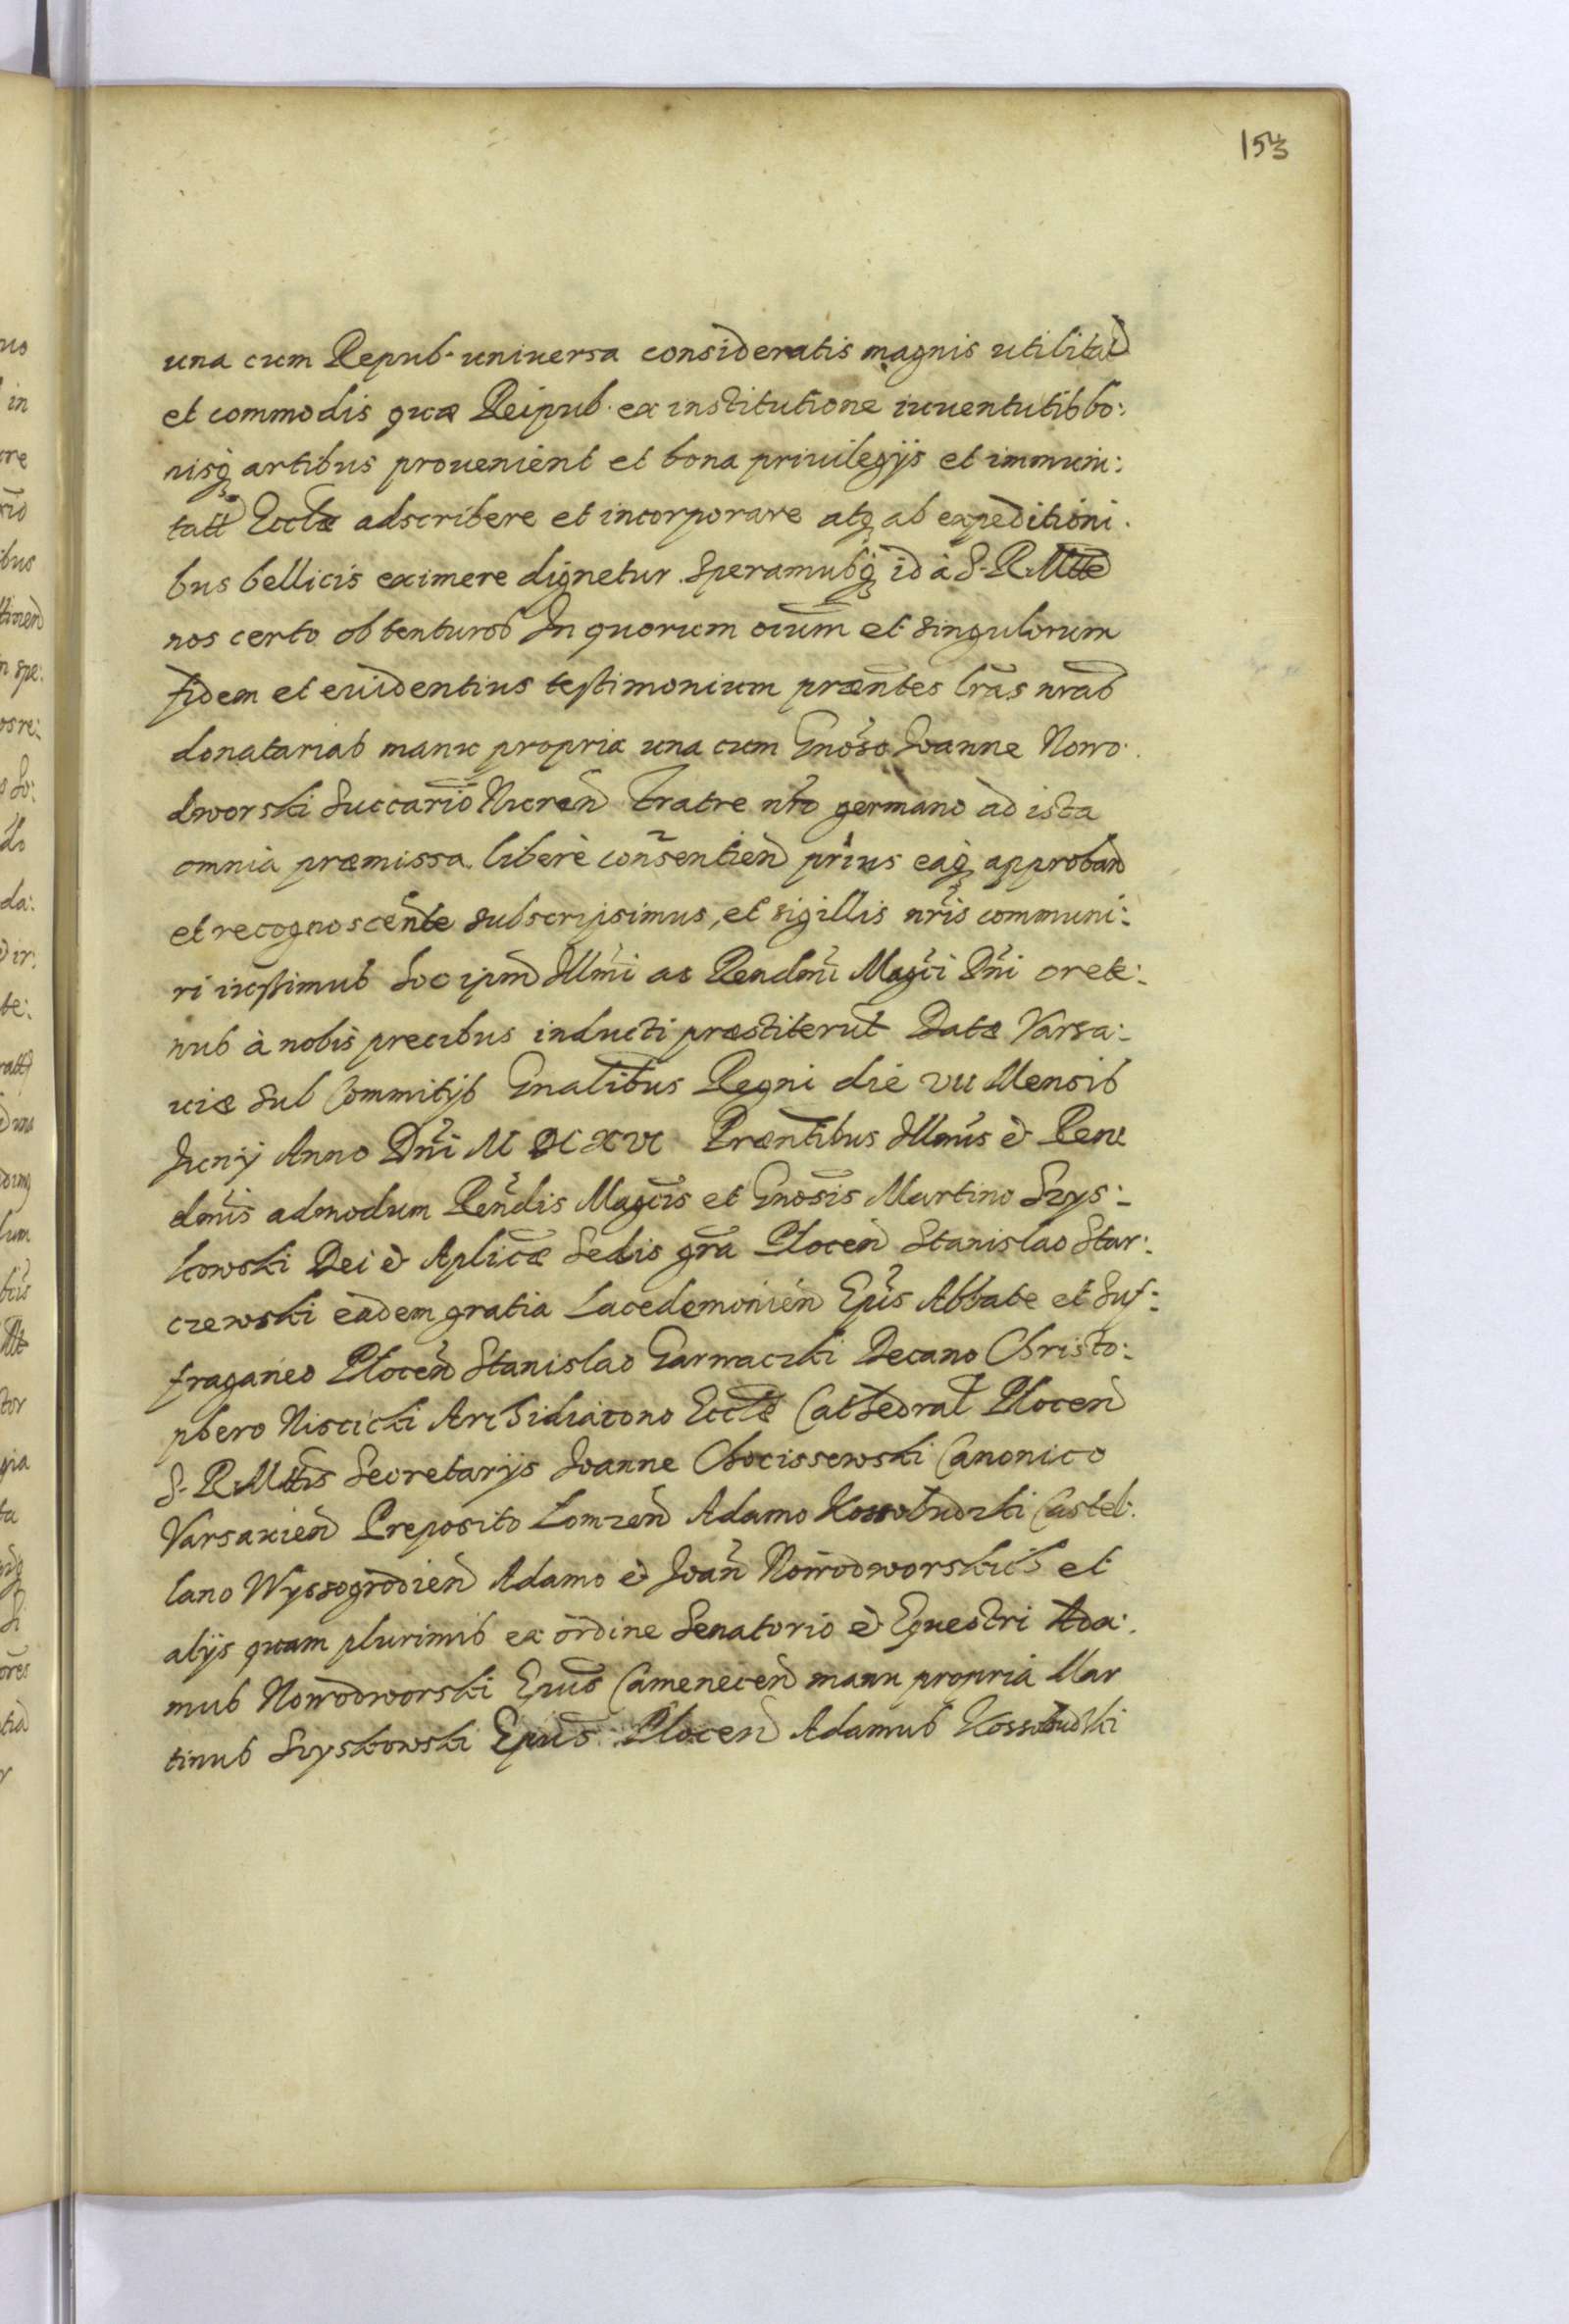 153
una cum Repub. uniuersa consideratis magnis utilitat
et commodis quæ Reipub. ex institutione iuuentutis bo:
nisq artibus prouenient et bona priuilegijs et immuni:
tatt Eccłæ adscribere et incorporare atq ab expeditioni.
bus bellicis eximere dignetur. Speramusq id à S. R. Mtte
nos certo obtenturos In quorum oium et singulorum
fidem et euidentius testimonium præntes lras nras
donatarias manu propria una cum Gnoso Joanne Nowo.
dworski Succario Nuren Fratre nro germano ad ista
omnia præmissa libere consentien prius eaq approban
et recognoscente subscripsimus, et sigillis nris communi:
ri iussimus hoc ipm Illmi ac Rendmi Magci Dni orete:
nus à nobis precibus inducti præstiterut Datæ Varsa:
uiæ sub Commitijs Gnalibus Regni die VII Mensis
Junij Anno Dni M DC XVI Præntibus Illmis & Reue
dmis admodum Rendis Magcis et Gnosis Martino Szys:
kowski Dei & Aplicæ Sedis gra Plocen Stanislao Star:
czewski eadem gratia Lacedemonien Epis Abbate et Suf:
fraganeo Plocen Stanislao Garwaczki Decano Christo:
phero Niscicki Archidiacono Eccłæ Cathedral Plocen
S. R. Mttis Secretarijs Joanne Chocissewski Canonico
Varsauien Preposito Lomzen Adamo Kossobudzki Castel.
lano Wyssogrodien Adamo & Joan Nowodworskich et
alijs quam plurimis ex ordine Senatorio & Equestri Ada:
mus Nowodworski Epus Camenecen manu propria Mar
tinus Szyskowski Epus Plocen Adamus Kossobudzki